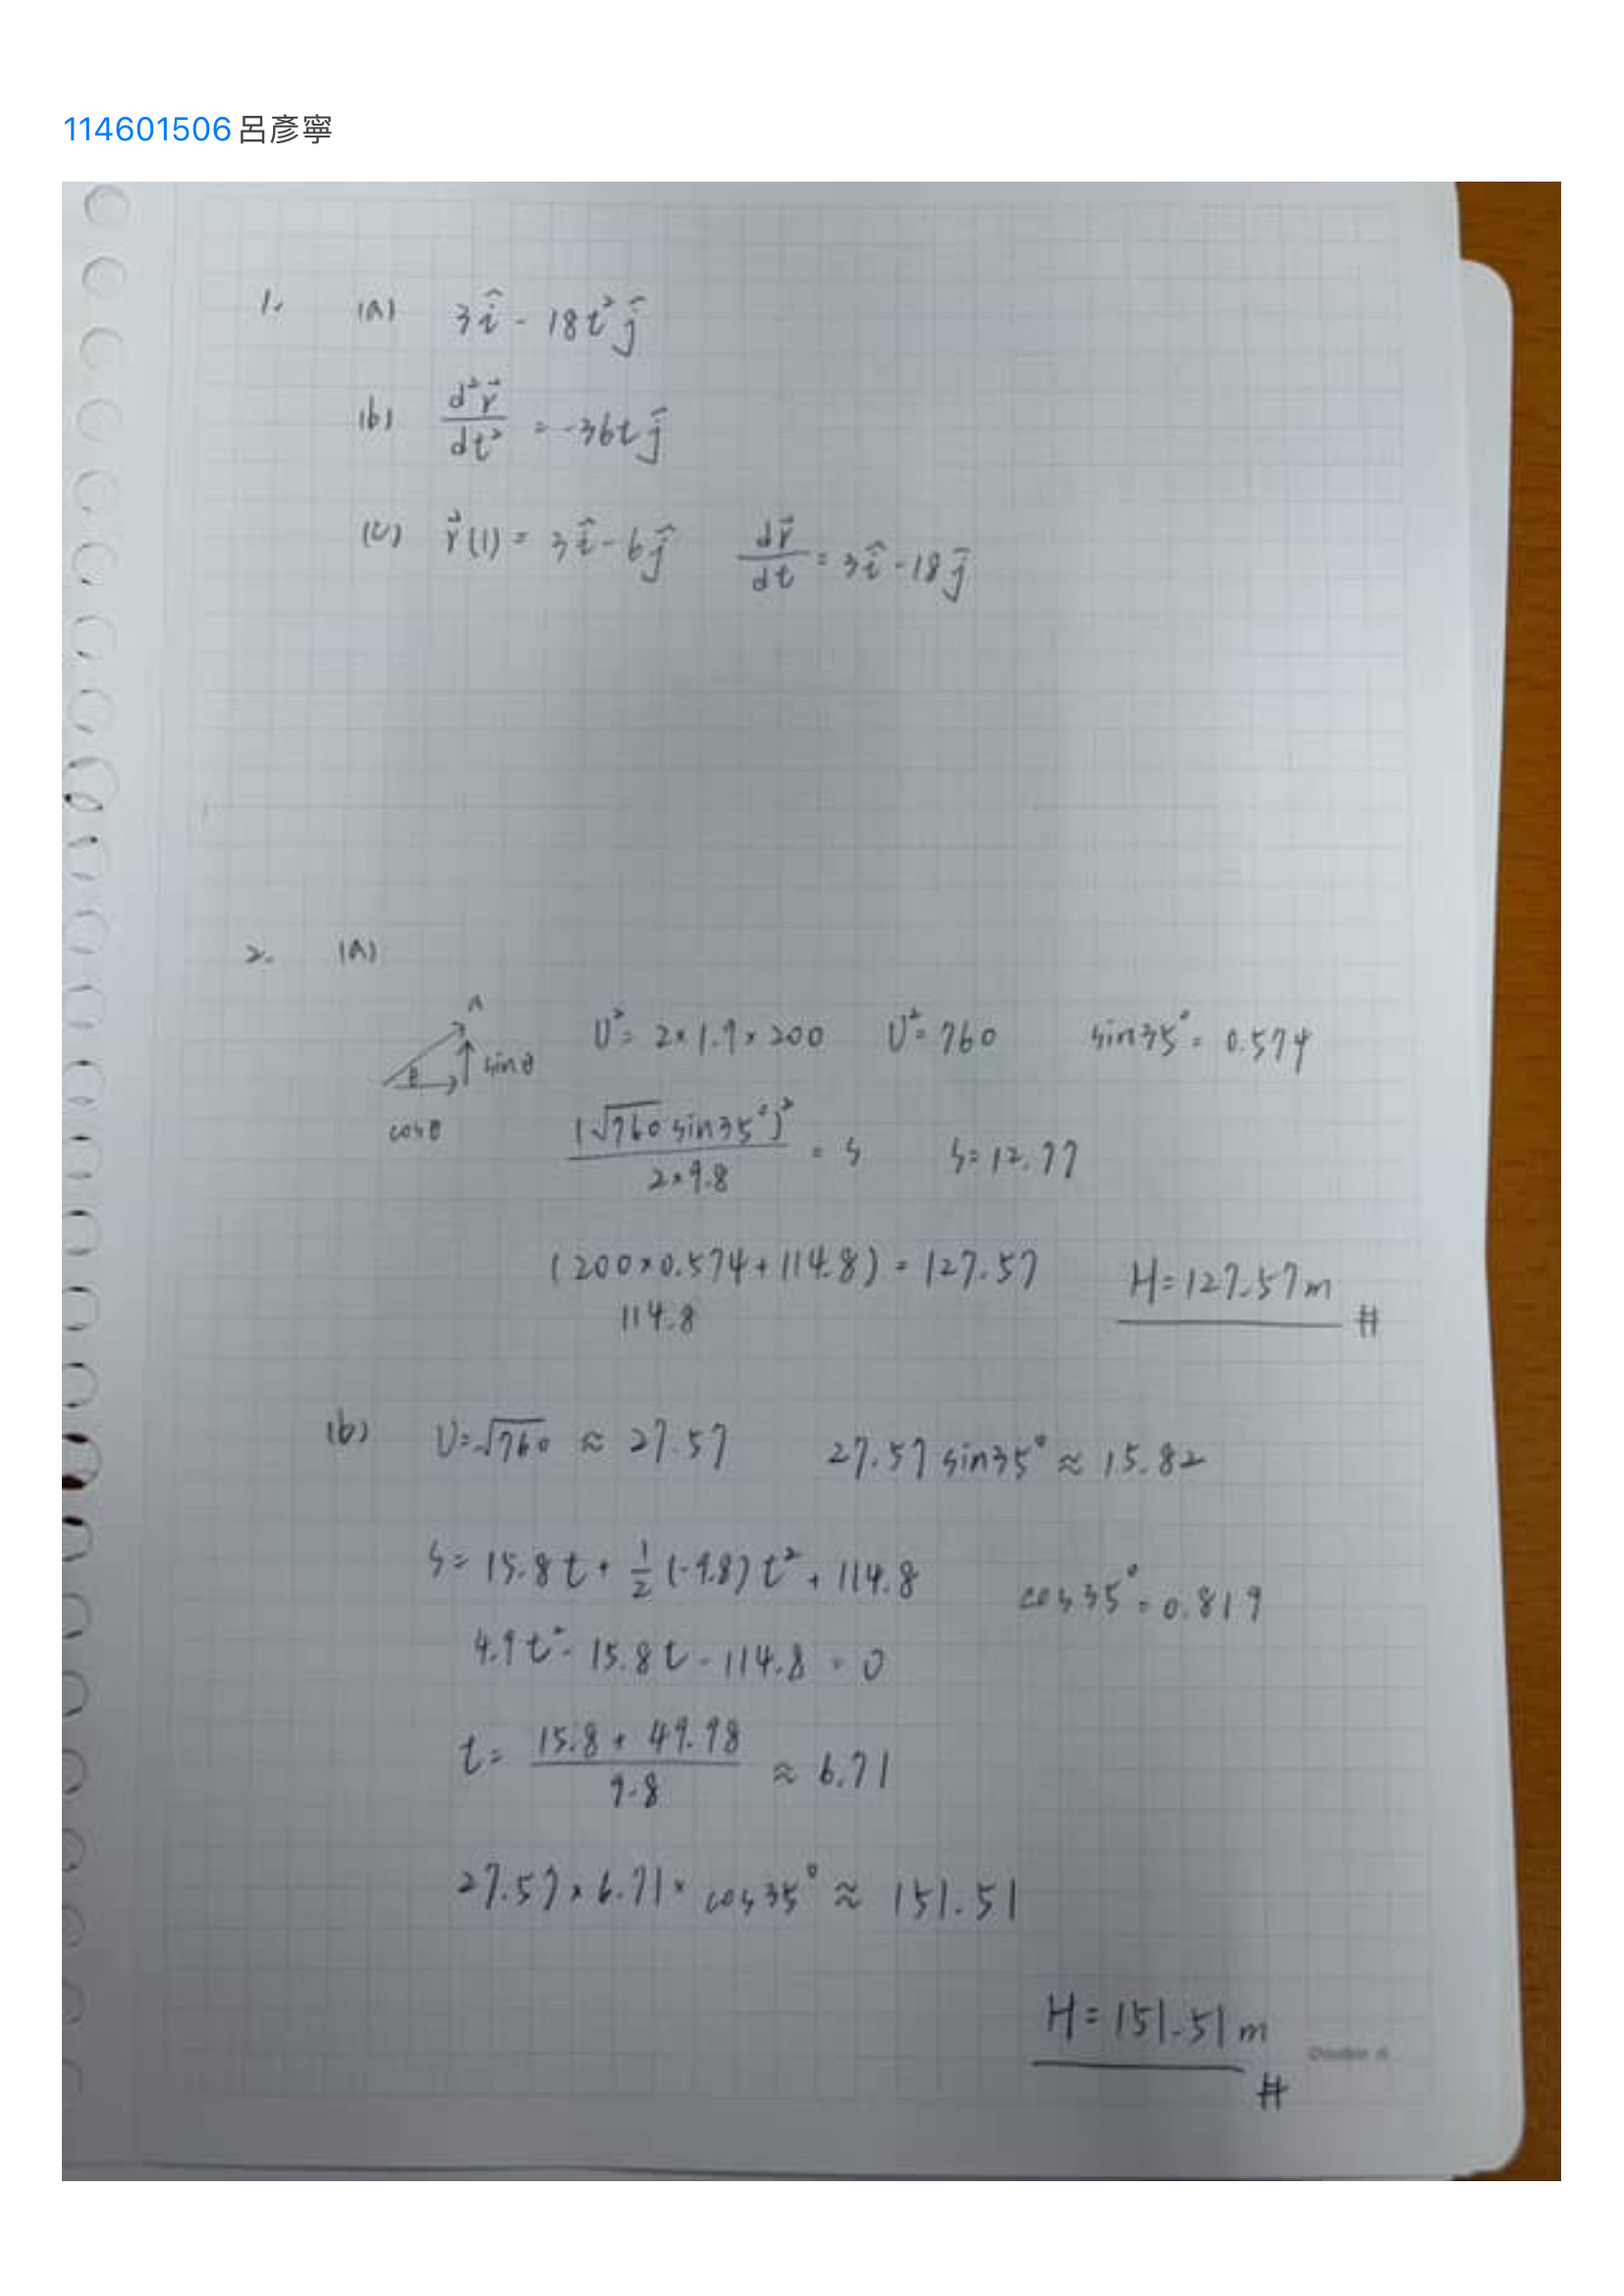 114601506 呂彥寧
1. (a) 3î - 18t² ĵ
(b) d²r⃗/dt² = -36t ĵ
(c) r⃗(1) = 3î - 6ĵ dr⃗/dt = 3î - 18ĵ
2. (a)
A
θ sinθ
cosθ
U² = 2×1.9×200 U² = 760 sin35° = 0.574
(√760 sin35°)²/2×9.8 = s s = 12.77
(200×0.574 + 114.8) = 127.57
114.8
H = 127.57m #
(b) U = √760 ≈ 27.57 27.57 sin35° ≈ 15.82
s = 15.8t + 1/2 (-9.8)t² + 114.8 cos35° = 0.819
4.9t² - 15.8t - 114.8 = 0
t = 15.8 + 49.98/9.8 ≈ 6.71
27.57 × 6.71 × cos35° ≈ 151.51
H = 151.51m #
Double A